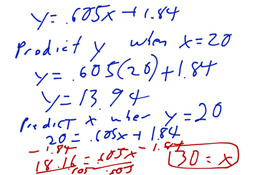 y = .605x + 1.84
Predict y when x = 20
y = .605(20) + 1.84
y = 13.94
Predict x when y = 20
20 = .605x + 1.84
- 1.84 - 1.84
18.16 = .605x
.605 .605
30 = x